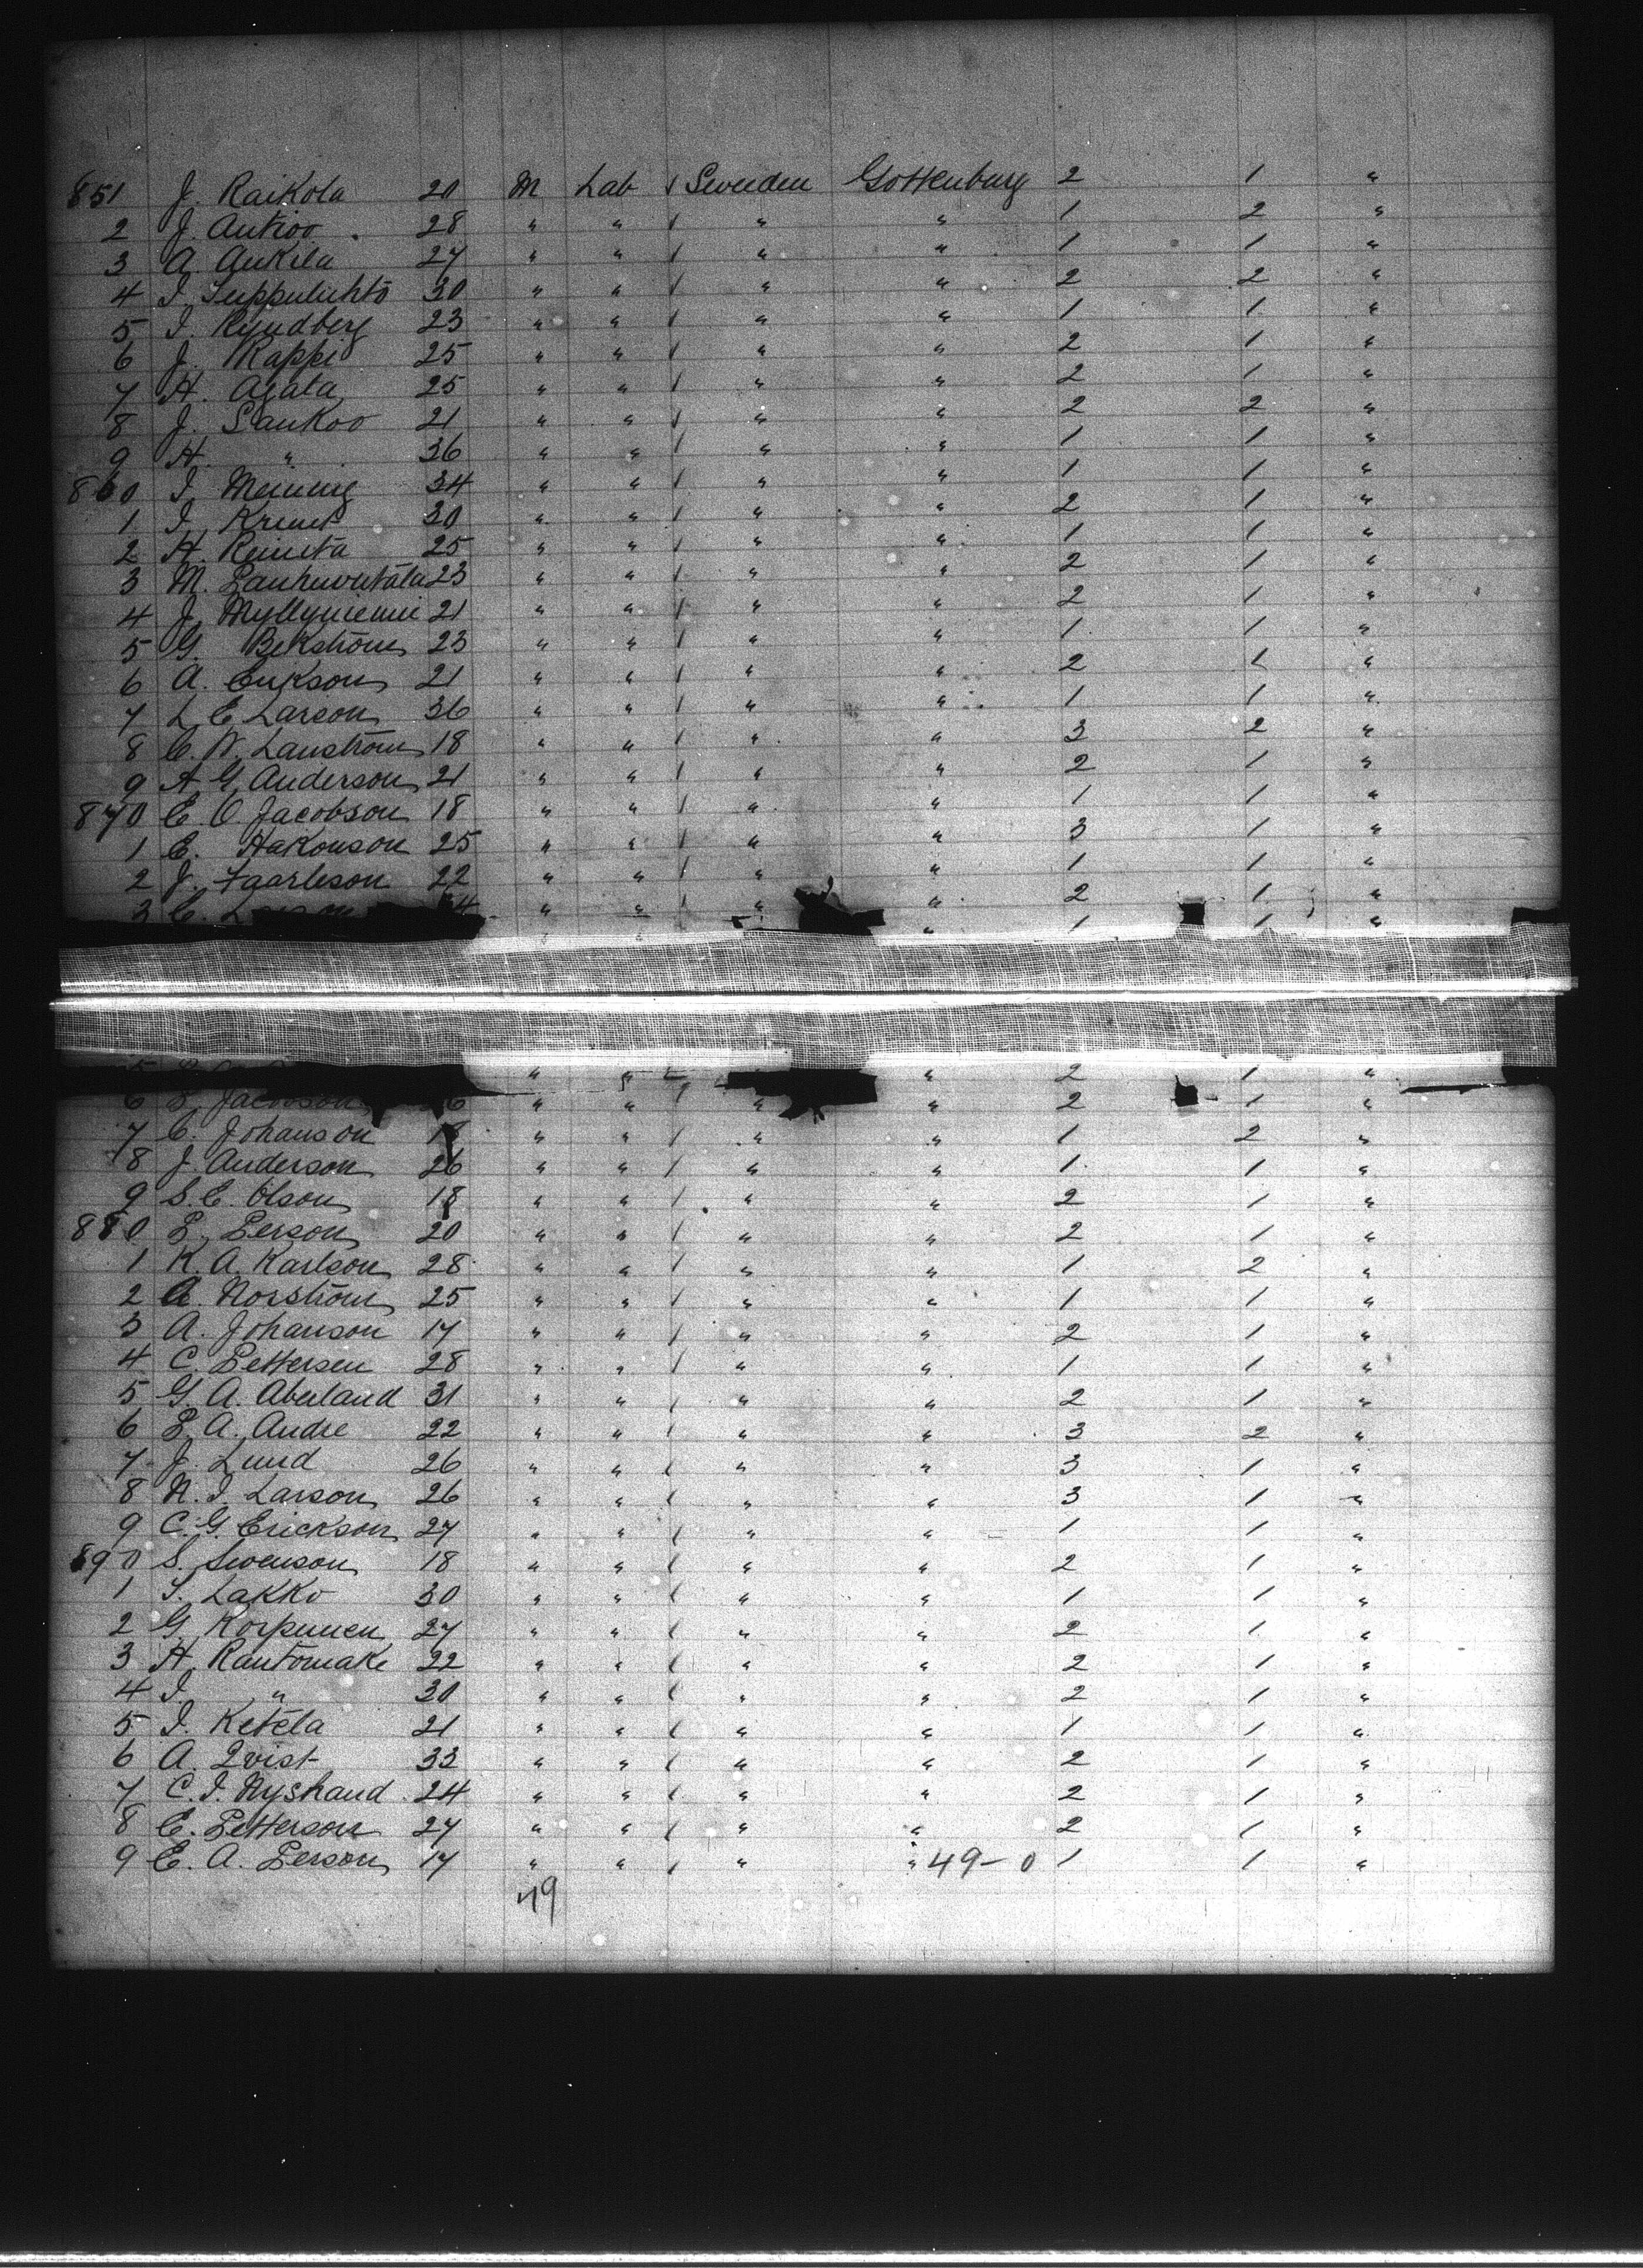 851 J. Raikola 20 M Lab √ Sweden Gottenburg 2 1 "
2 J. Autioo 28 " " / " " 1 2 "
3 A. Aukila 27 " " / " " 1 1 "
4 I. Seppuluhto 30 " " / " " 2 2 "
5 I. Ryndberg 23 " " / " " 1 1 "
6 J. Rappi 25 " " / " " 2 1 "
7 H. Ajata 25 " " / " " 2 1 "
8 J. Saukoo 21 " " / " " 2 2 "
9 H. " 36 " " / " " 1 1 "
860 I. 34 " " / " " 1 1 "
1 I. 30 " " / " " 2 1 "
2 H. 25 " " / " " 1 1 "
3 M. 23 " " / " " 2 1 "
4 J. Myllyniemi 21 " " / " " 2 1 "
5 G. Bekström 23 " " / " " 1 1 "
6 A. Erikson 21 " " / " " 2 1 "
7 L. E. Larson 36 " " / " " 1 1 "
8 C. W. Lanström 18 " " / " " 3 2 "
9 A. G. Anderson 21 " " / " " 2 1 "
870 E. O. Jacobson 18 " " / " " 1 1 "
1 E. Hakonson 25 " " / " " 3 1 "
2 J. Faarleson 22 " " / " " 1 1 "
3 C. " " " " 2 1 "
" 1 1 "
5 " " " 2 1 "
6 Jacobson " " / " " 2 1 "
7 C. Johanson " " / " " 1 2 "
8 J. Anderson 26 " " / " " 1 1 "
9 S. E. Olson 18 " " / " " 2 1 "
880 P. Person 20 " " / " " 2 1 "
1 K. A. Karlson 28 " " / " " 1 2 "
2 A. Norström 25 " " / " " 1 1 "
3 A. Johanson 17 " " / " " 2 1 "
4 C. Pettersen 28 " " / " " 1 1 "
5 G. A. Aberland 31 " " / " " 2 1 "
6 P. A. Andre 22 " " / " " 3 2 "
7 J. Lund 26 " " / " " 3 1 "
8 N. I. Larson 26 " " / " " 3 1 "
9 C. G. Erickson 27 " " / " " 1 1 "
890 S. Swenson 18 " " / " " 2 1 "
1 S. Lakko 30 " " / " " 1 1 "
2 G. Korpunen 27 " " / " " 2 1 "
3 H. Rautomake 22 " " / " " 2 1 "
4 I. " 30 " " / " " 2 1 "
5 I. Ketela 21 " " / " " 1 1 "
6 A. Qvist 33 " " / " " 2 1 "
7 C. I. Nyshand 24 " " / " " 2 1 "
8 E. Petterson 27 " " / " " 2 1 "
9 E. A. Person 17 " " / " " 49-0 1 1 "
49